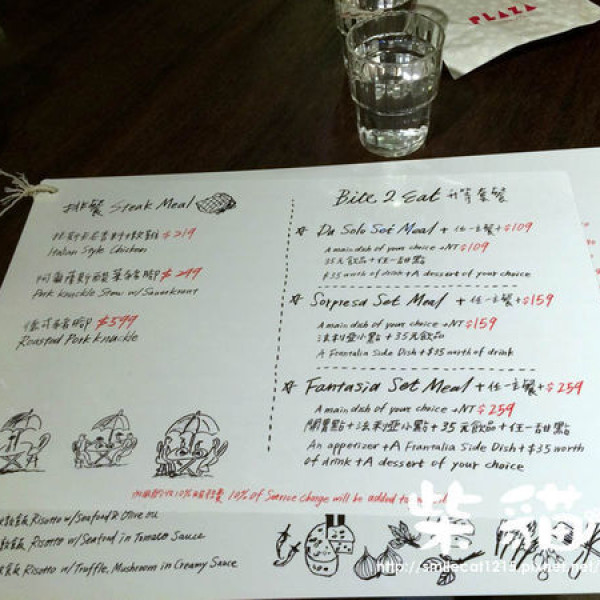 PLAZA
排餐 Steak Meal
$219
Italian Style Chicken
$299
Pork Knuckle Stew w/ Sauerkraut
德式豬腳 $599
Roasted Pork Knuckle
Bite 2 Eat 升等套餐
☆ Da Solo Set Meal + 任一主餐+$109
A main dish of your choice +NT$109
35元飲品+任一甜點
$35 worth of drink + A dessert of your choice
☆ Sorpresa Set Meal + 任一主餐+$159
A main dish of your choice +NT$159
法利亞小點+35元飲品
A Frantalia Side Dish + $35 worth of drink
☆ Fantasia Set Meal + 任一主餐+$259
A main dish of your choice +NT$259
開胃點+法米婭小點+35元飲品+任一甜點
An appetizer + A Frantalia Side Dish + $35 worth
of drink + A dessert of your choice
10% of Service charge will be added to
Risotto w/ Seafood & Olive Oil
飯 Risotto w/ Seafood in Tomato Sauce
飯 Risotto w/ Truffle, Mushroom in Creamy Sauce
柴貓
http://smilecat1215.pixnet.net/